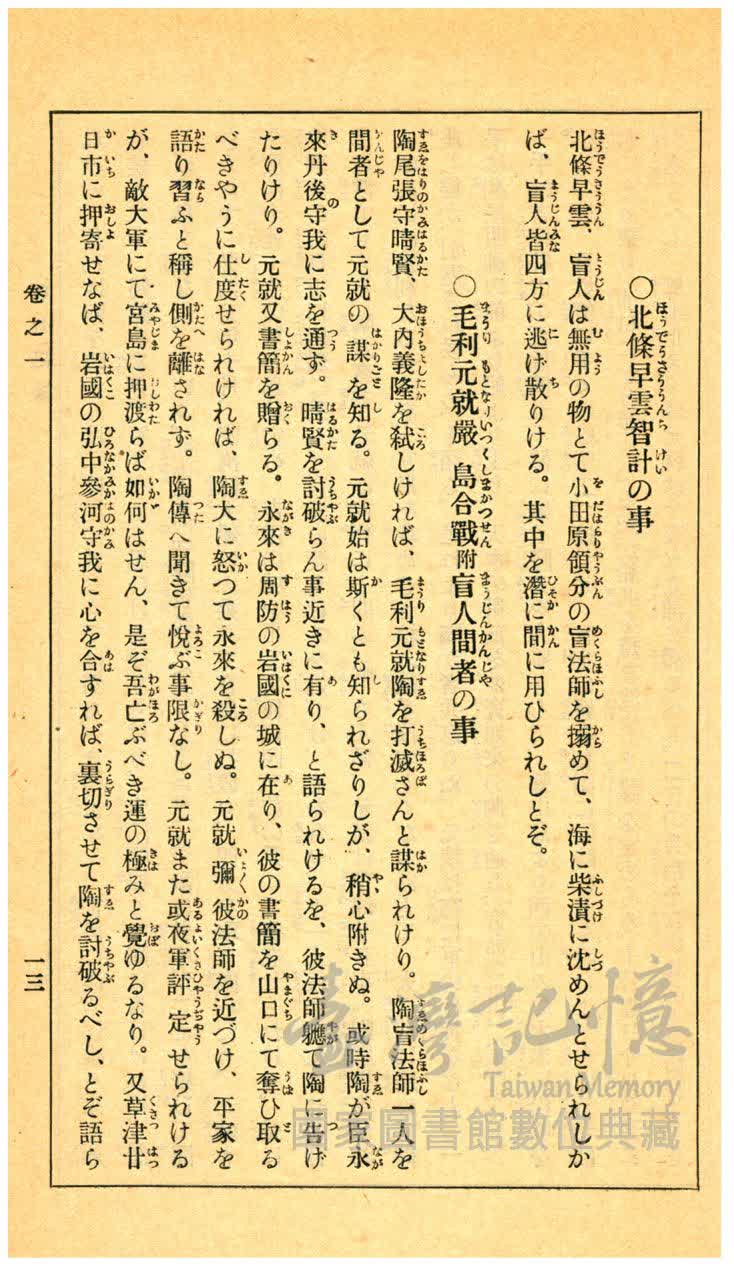 ○北條早雲智計の事
北條早雲、盲人は無用の物とて小田原領分の盲法師を搦めて、海に柴漬に沈めんとせられしか
ば、盲人皆四方に逃げ散りける。其中を潛に間に用ひられしとぞ。
○毛利元就嚴島合戰附盲人間者の事
陶尾張守晴賢、大内義隆を弑しければ、毛利元就陶を打滅さんと謀られけり。陶盲法師一人を
間者として元就の謀を知る。元就始は斯くとも知られざりしが、稍心附きぬ。或時陶が臣永
來丹後守我に志を通ず。晴賢を討破らん事近きに有り、と語られけるを、彼法師軈て陶に告げ
たりけり。元就又書簡を贈らる。永來は周防の岩國の城に在り、彼の書簡を山口にて奪ひ取る
べきやうに仕度せられければ、陶大に怒つて永來を殺しぬ。元就彌彼法師を近づけ、平家を
語り習ふと稱し側を離されず。陶傳へ聞きて悅ぶ事限なし。元就また或夜軍評定せられける
が、敵大軍にて宮島に押渡らば如何はせん、是ぞ吾亡ぶべき運の極みと覺ゆるなり。又草津廿
日市に押寄せなば、岩國の弘中參河守我に心を合すれば、裏切させて陶を討破るべし、とぞ語ら
卷之一
一三
臺灣記憶
Taiwan Memory
國家圖書館數位典藏